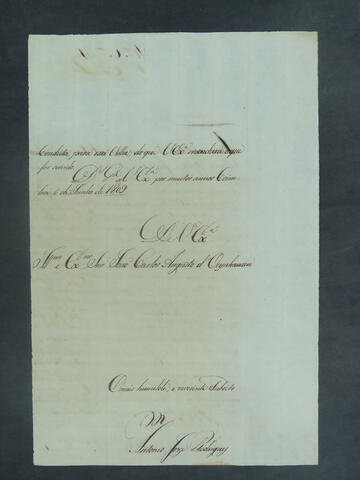 Conduta, para esta Villa, do que V Exa mandará o que
for servido.
Ds Gde a V Exa por muitos annos Coim
bra 6 de Junho de 1809
De V Exa
Illmo e Exmo Snr João Carlos Augusto d'Oeynhausen
O mais humilde, e reverente Subdito
Antonio Joze Rodrigues